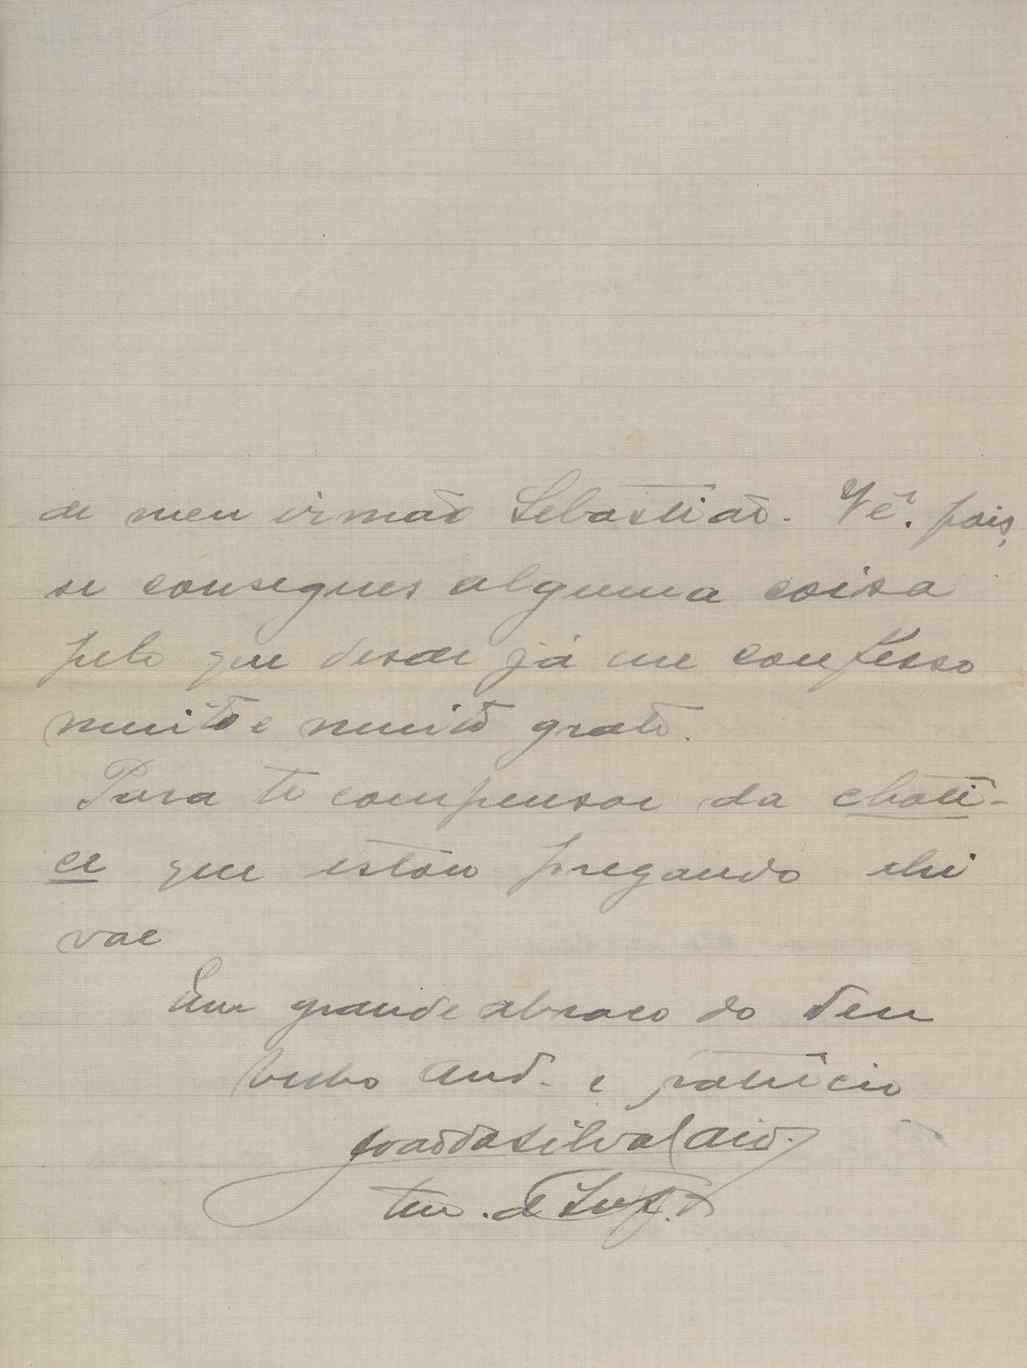 de meu irmão Sebastião. Vê, pois,
se consegues alguma coisa
pelo que desde já me confesso
muito e muito grato.
Para te compensar da chati-
ce que estou pregando ahi
vae
Um grande abraço do teu
velho am.º e patricio
João da Silva
ten. de Inf.